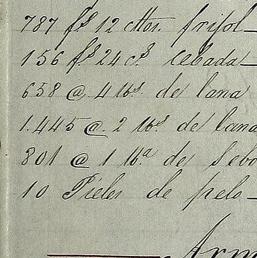 787 fs 12 cttos. frisol
156 fs 24 cs. cebada
658 @ 4 lbs. de lana
1.445 @ 2 lbs. de lana
801 @ 1 lba. de sebo
10 Pieles de pelo